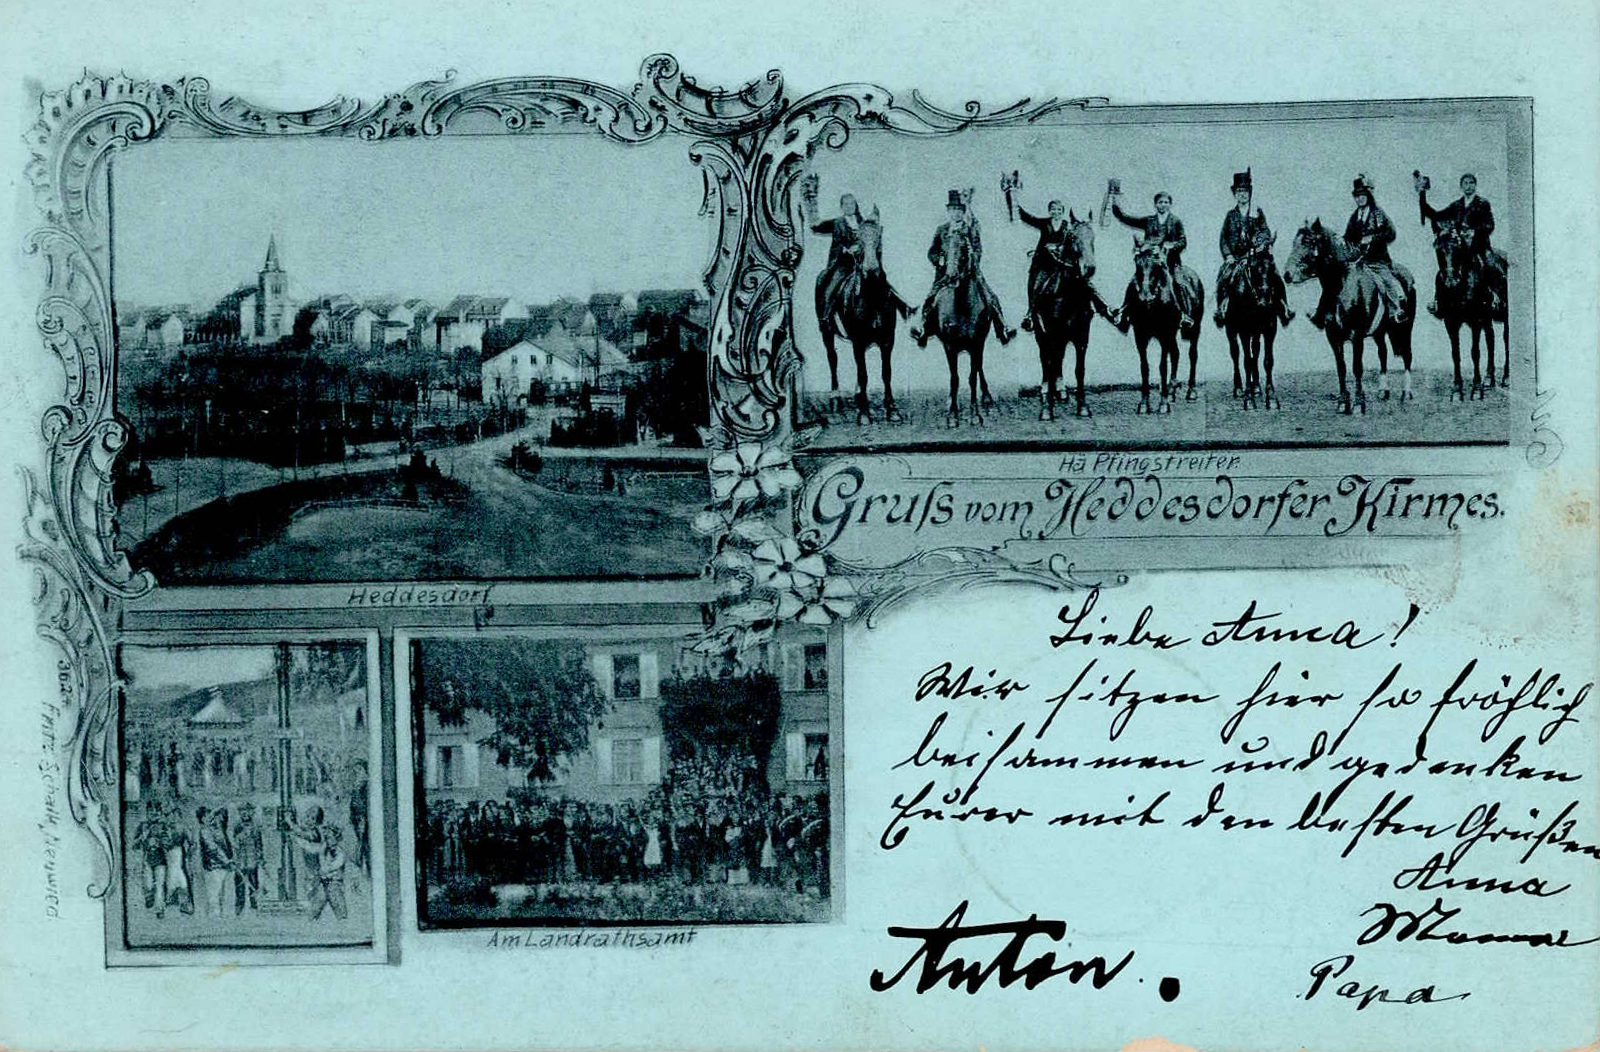 Hä Pfingstreiter.
Gruſs vom Heddesdorfer Kirmes.
Heddesdorf.
Am Landrathsamt
362 Fritz Schalk, Neuwied
Liebe Anna!
Wir sitzen hier so fröhlich
beisammen und gedenken
Eurer mit den besten Grüßen
Anna
Mama
Papa
Anton.